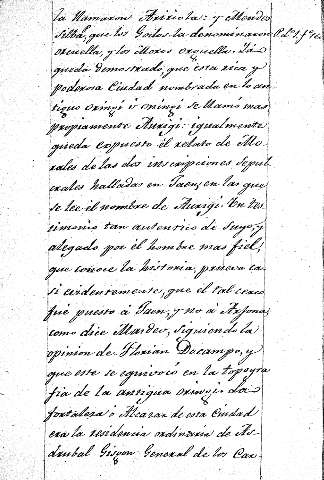 la llamaron Auriola: y Mendes
Silba, que los Godos la denominaron
orcuella, y los Moros orguelle. Ya
queda demostrado, que esta rica y
poderosa Ciudad nombrada en lo an-
tiguo oringi ú oningi se llamó mas
propiamente Aurigi: igualmente
queda expuesto el relato de Mo-
rales de las dos inscripciones sepul-
crales halladas en Jaen, en las que
se lee el nombre de Aurigi. Un tes-
timonio tan autentico de suyo, y
alegado por el hombre mas fiel,
que conoce la historia, prueva ca-
si evidentemente, que el tal cerco
fue puesto á Jaen, y no á Arjona,
como dice Masdeu, siguiendo la
opinion de Florian Docampo, y
que este se equivocó en la topogra-
fia de la antigua oringi. La
fortaleza ó Alcazar de esta Ciudad
era la residencia ordinaria de As-
drubal Gisgon General de los Car-